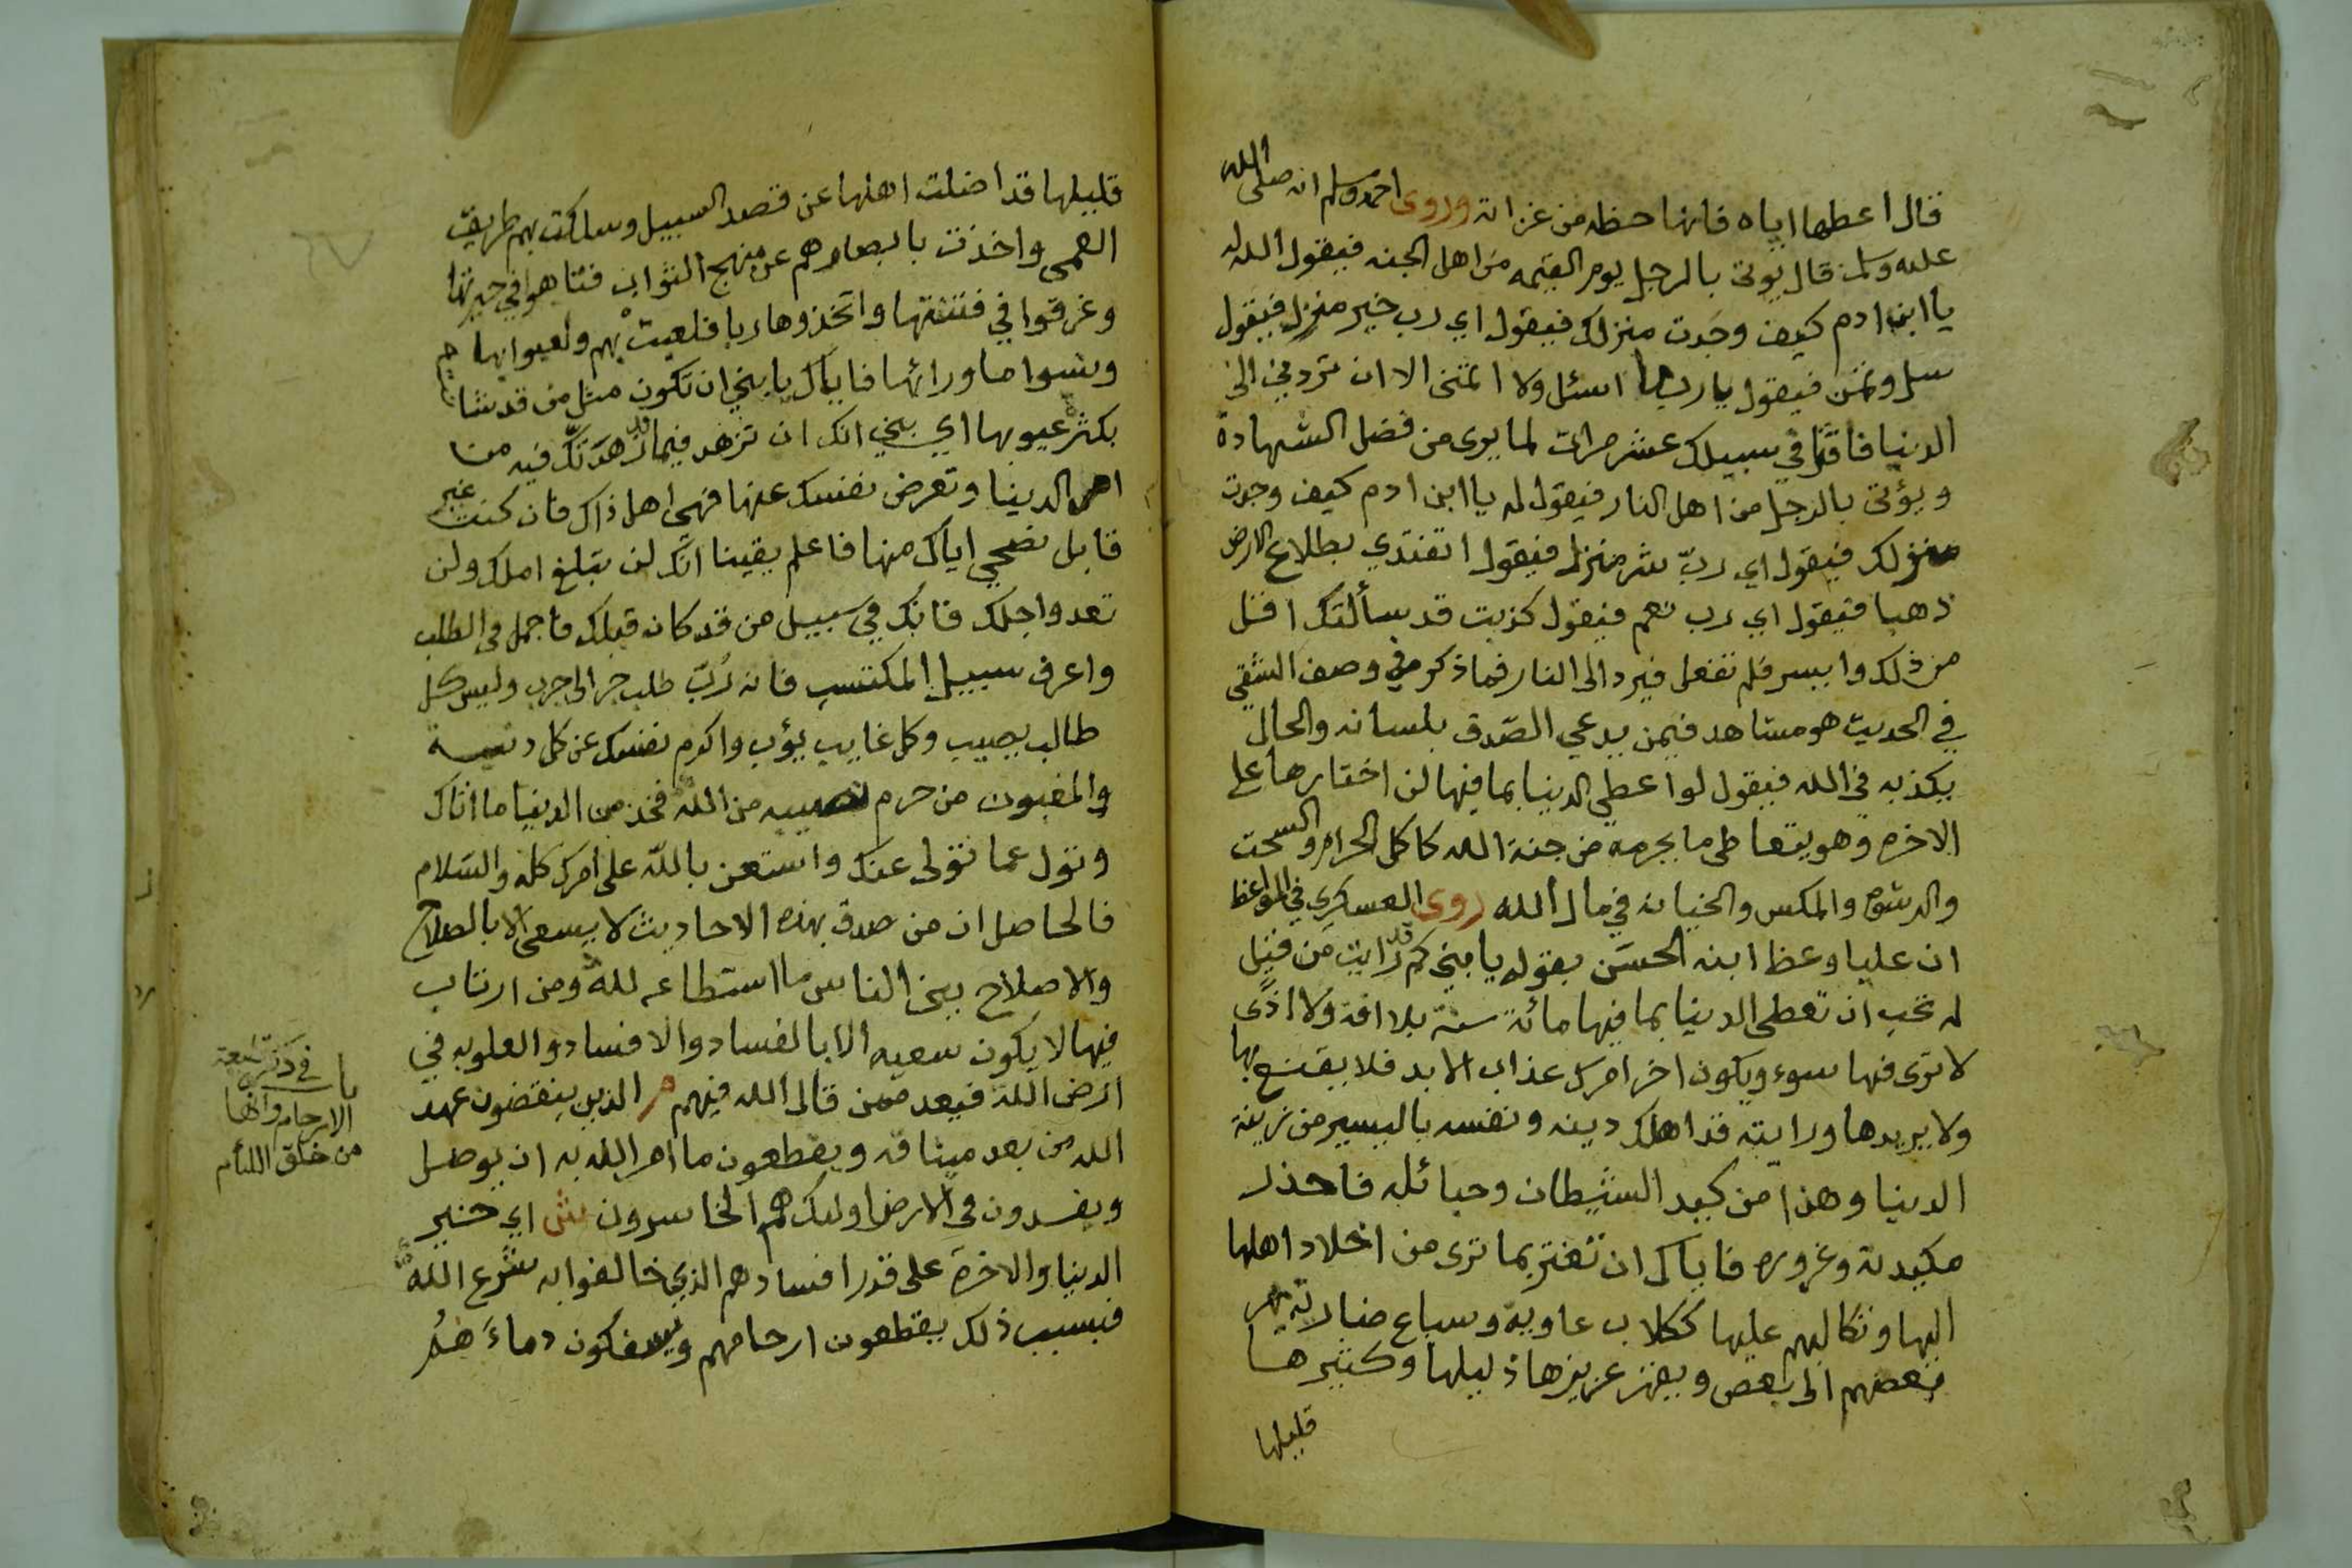 قال اعطها اياه فانها حظه من غزاته وروى احمد ومسلم انه صلى الله
عليه وسلم قال يؤتى بالرجل يوم القيمه من اهل الجنه فيقول الله له
يا ابن ادم كيف وجدت منزلك فيقول اي رب خير منزل فيقول
سل وتمن فيقول يا رب ما اسئل ولا اتمنى الا ان تردني الى
الدنيا فاقتل في سبيلك عشر مرات لما يرى من فضل الشهادة
ويؤتى بالرجل من اهل النار فيقول له يا ابن ادم كيف وجدت
منزلك فيقول اي ربّ شر منزل فيقول اتفتدي بطلاع الارض
ذهبا فيقول اي رب نعم فيقول كذبت قد سألتك اقل
من ذلك وايسر فلم تفعل فيرد الى النار فما ذكر في وصف الشقي
في الحديث هو مشاهد فيمن يدعي الصّدق بلسانه والحال
يكذبه في الله فيقول لو اعطي الدنيا بما فيها لن اختارها على
الاخره وهو يتعاطى ما يحرمه من جنة الله كاكل الحرام والسحت
والرشوه والمكس والخيانه في مال الله روى العسكري في المواعظ
ان عليا وعظ ابنه الحسَن بقوله يا بني كم قد رايت من قيل
له تحب ان تعطى الدنيا بما فيها مائة سنة بلا افة ولا اذًى
لا ترى فيها سوء ويكون اخر امرك عذاب الابد فلا يقنع بها
ولا يريدها ورايته قد اهلك دينه ونفسه باليسير من زينة
الدنيا وهذا من كيد الشيطان وحبائله فاحذر
مكيدته وغروره فاياك ان تغتر بما ترى من اخلاد اهلها
اليها وتكالبهم عليها ككلاب عاويه وسباع ضارية يهر
بعضهم الى بعض ويقهر عزيزها ذليلها وكثيرها
قليلها
قليلها قد اضلت اهلها عن قصد السبيل وسلكت بهم طريق
العمى واخذت بابصارهم عن منهج الثواب فتاهوا في حيرتها
وغرقوا في فتنتها واتخذوها ربا فلعبت بهم ولعبوا بها
ونسوا ما ورائها فاياك يا بني ان تكون مثل من قد شانته
بكثرة عيوبها اي بني انك ان تزهد فيما قد زهدتك فيه من
اهل الدنيا وتعرض نفسك عنها فهي اهل ذاك فان كنت غير
قابل نصحي اياك منها فاعلم يقينا انك لن تبلغ املك ولن
تعدو اجلك فانك في سبيل من قد كان قبلك فاجمل في الطلب
واعرف سبيل المكتسب فانه رُبّ طلب جر الى حرب وليس كل
طالب يصيب وكل غايب يؤب واكرم نفسك عن كل دنيه
والمغبون من حرم نصيبه من الله فخذ من الدنيا ما اتاك
وتول عما تولى عنك واستعن بالله على امرك كله والسّلام
فالحاصل ان من صدق بهذه الاحاديث لا يسعى الا بالصلاح
والاصلاح بين الناس ما استطاعه لله ومن ارتاب
فيها لا يكون سعيه الا بالفساد والافساد والعلو به في
ارض الله فيعد ممن قال الله فيهم الذين ينقضون عهد
الله من بعد ميثاقه ويقطعون ما امر الله به ان يوصل
ويفسدون في الارض اولئك هم الخاسرون ش اي خسر
الدنيا والاخرة على قدر افسادهم الذي خالفوا به شرع الله
فبسبب ذلك يقطعون ارحامهم ويسفكون دماءَ هُمُ
باب في ذكر قطيعة
الارحام وانها
من خلق اللئام